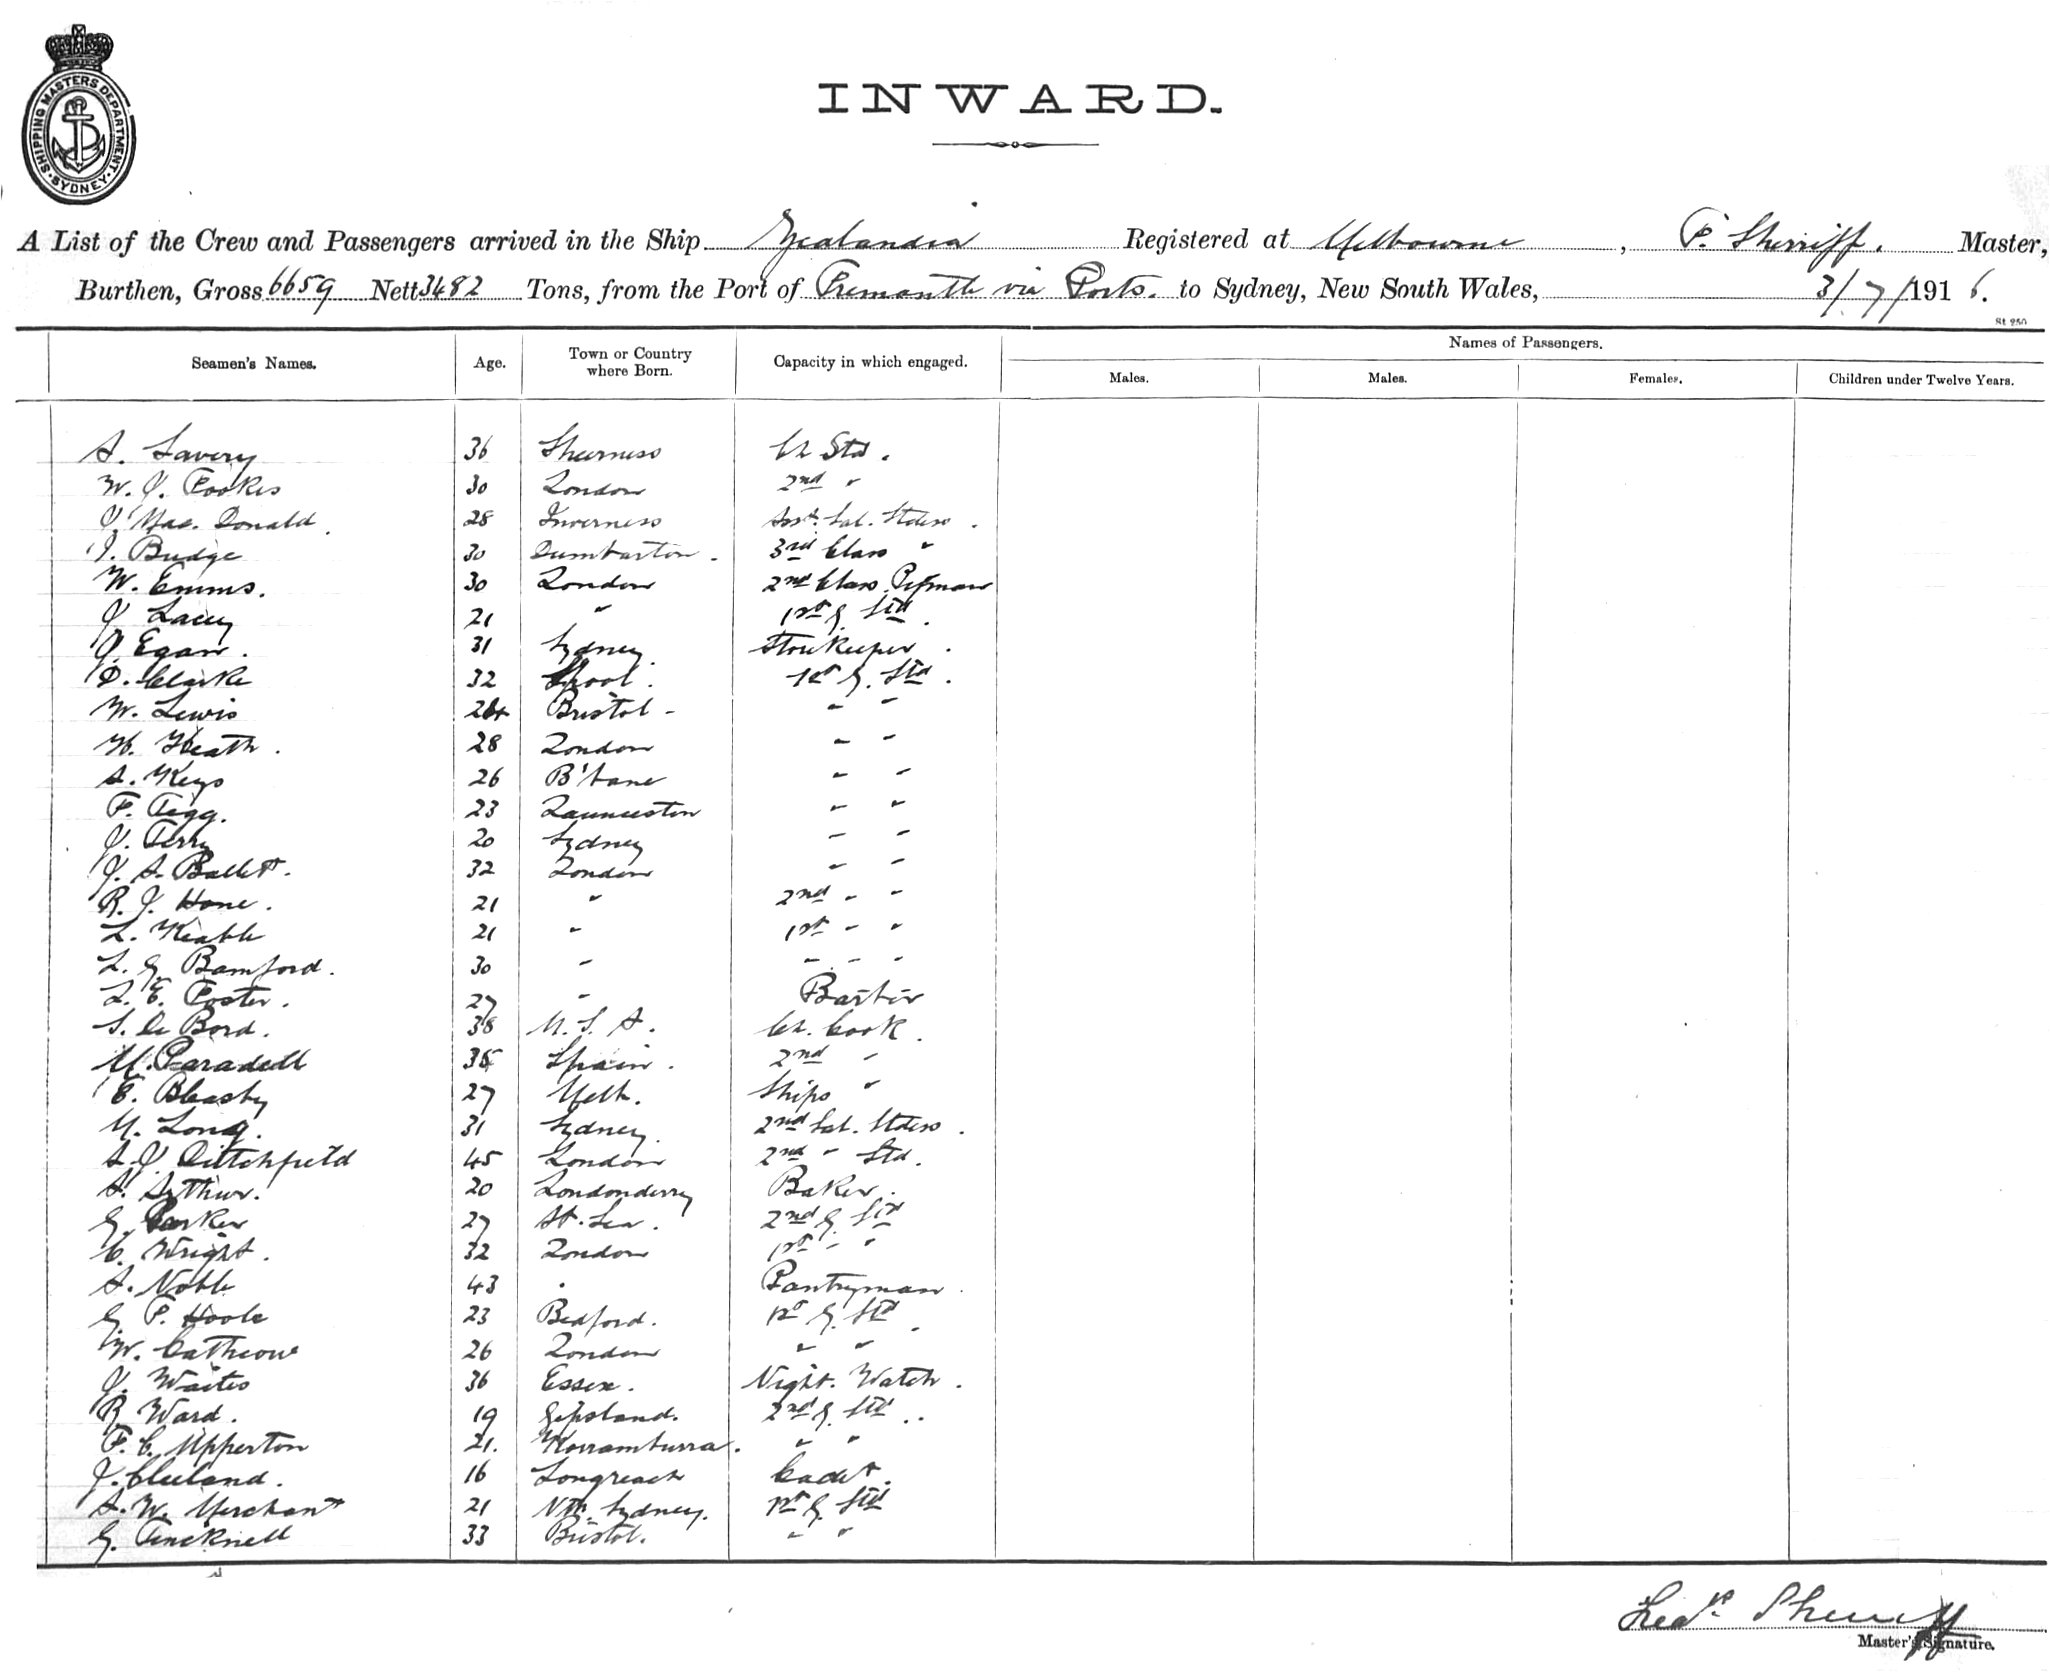 SHIPPING MASTERS DEPARTMENT · SYDNEY ·
INWARD.
A List of the Crew and Passengers arrived in the Ship Zealandia Registered at Melbourne, F. Sherriff. Master,
Burthen, Gross 6659 Nett 3482 Tons, from the Port of Fremantle via Ports. to Sydney, New South Wales, 3/7/1916.
St 250
Seamen's Names. Age. Town or Country where Born. Capacity in which engaged. Names of Passengers.
Males. Males. Females. Children under Twelve Years.
A. Savery 36 Sheerness Ch Std.
W. J. Fookes 30 London 2nd "
J. Mac. Donald. 28 Inverness Asst. Sal. Stdess.
J. Budge 30 Dumbarton. 3rd Class "
W. Emms. 30 London 2nd Class
J Lacey 21 " 1st G. Std.
J. Egan. 31 Sydney. Storekeeper.
D. Clarke 32 L'pool. 1st G. Std.
W. Lewis Bristol - " "
H. Heath. 28 London " "
A. Keys 26 B'bane " "
F. Tigg. 23 Launceston " "
J. Terry 20 Sydney " "
J. A. Ballett. 32 London " "
R. J. Hone. 21 " 2nd " "
L. Keable 21 " 1st " "
L. G. Bamford. 30 " " " "
L. E. Foster. 27 " Barber
S. De Bord. 38 U. S. A. Ch. Cook.
M. Paradell Spain. 2nd "
E. Bleasby 27 Melb. Ships "
M. Long. 31 Sydney. 2nd Sal. Stdess.
A. J. Ditchfield 45 London 2nd " Std.
A. Arthur. 20 Londonderry Baker.
G. Parker 27 At. Sea. 2nd G. Std
C. Wright. 32 London 1st " "
A. Noble 43 " Pantryman.
G. F. Hoole 23 Bedford. 1st G. Std
W. 26 London " "
J. Waites 36 Essex. Night. Watch.
R. Ward. 19 Gipsland. 2nd G. Std..
F. C. Upperton 21. Korramburra. " "
J. Cleeland. 16 Longreach Cadet.
A. W. Merchant 21 Nth. Sydney. 1st G. Std
G. Tincknell 33 Bristol. " "
Fredk. Sherriff
Master's Signature.